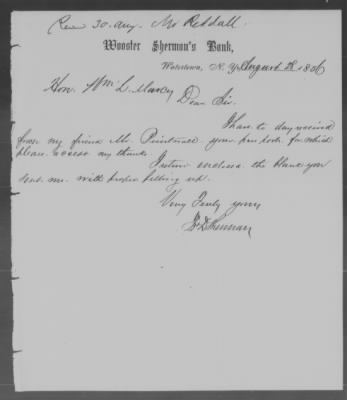 Rec 30. Aug. Mr Reddall
Wooster Sherman's Bank,
Watertown, N. Y. August 28 1856
Hon. Wm L. Marcy
Dear Sir.
I have to day received
from my friend Mr. your for which
please accept my thanks.
I return enclosed the blank you
sent me. with proper filling up.
Very Truly yours
Sherman